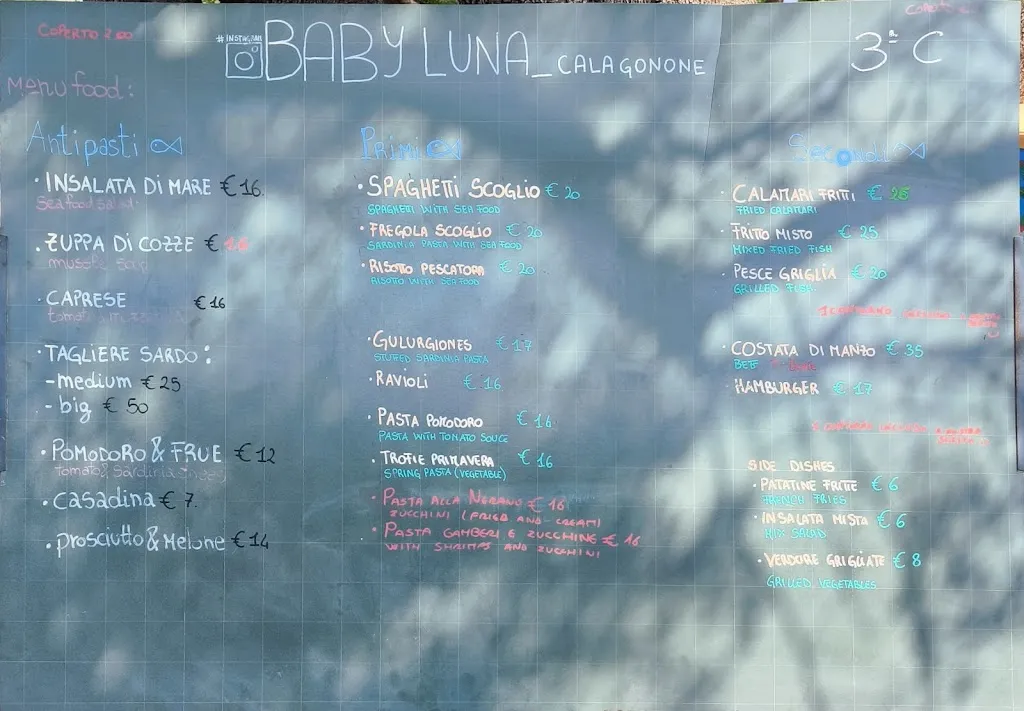 COPERTO 2.00
#INSTAGRAM
BABY LUNA_ CALAGONONE
3ª C
Menu food:
Antipasti
• INSALATA DI MARE € 16
Seafood salad
• ZUPPA DI COZZE €
• CAPRESE € 16
• TAGLIERE SARDO:
- medium € 25
- big € 50
• POMODORO & FRUE € 12
tomato & Sardinia
• casadina € 7
• prosciutto & Melone € 14
Primi
• SPAGHETTI SCOGLIO € 20
SPAGHETTI WITH SEA FOOD
• FREGOLA SCOGLIO € 20
SARDINIA PASTA WITH SEA FOOD
• RISOTTO PESCATORA € 20
RISOTTO WITH SEA FOOD
• GULURGIONES € 17
STUFFED SARDINIA PASTA
• RAVIOLI € 16
• PASTA POMODORO € 16
PASTA WITH TOMATO SOUCE
• TROFIE PRIMAVERA € 16
SPRING PASTA (VEGETABLE)
• PASTA ALLA NERANO € 16
ZUCCHINI (FRIED AND CREAM)
• PASTA GAMBERI E ZUCCHINE € 16
WITH SHRIMPS AND ZUCCHINI
Secondi
• CALAMARI FRITTI €
FRIED CALAMARI
• FRITTO MISTO € 25
MIXED FRIED FISH
• PESCE GRIGLIA € 20
GRILLED FISH
• COSTATA DI MANZO € 35
BEEF
• HAMBURGER € 17
SIDE DISHES
• PATATINE FRITTE € 6
FRENCH FRIES
• INSALATA MISTA € 6
MIX SALAD
• VERDURE GRIGLIATE € 8
GRILLED VEGETABLES